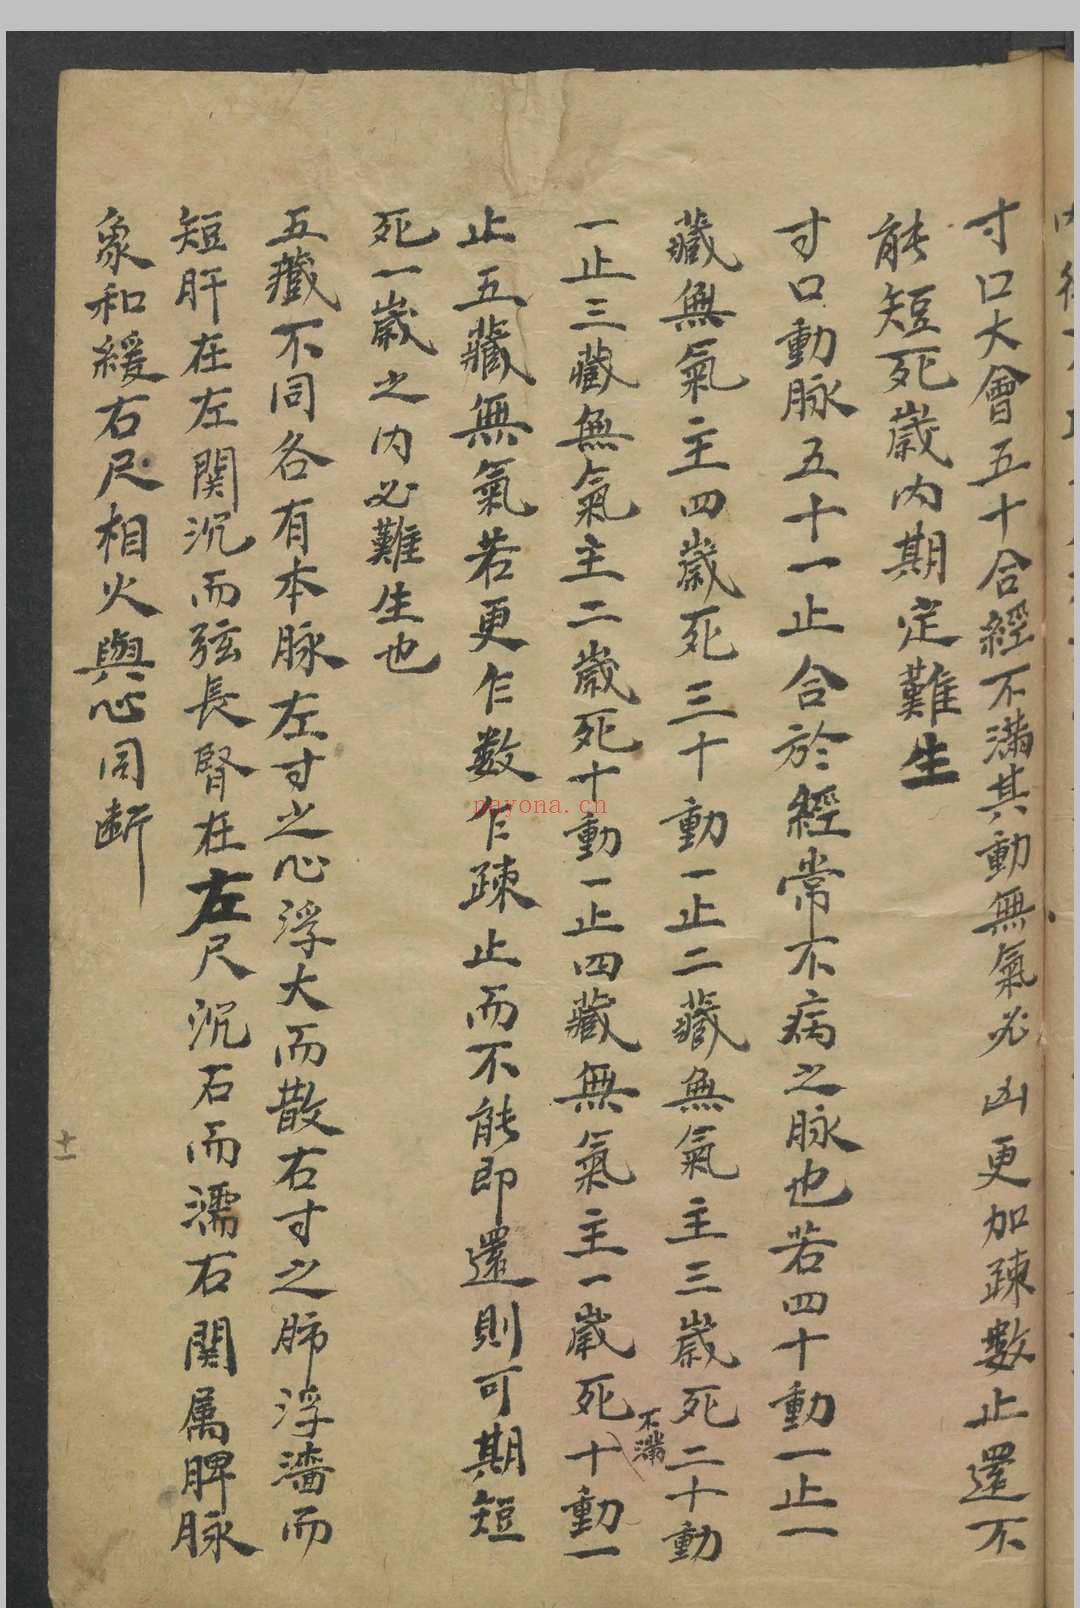 寸口大會五十合經不滿其動無氣必凶更加疎數止還不
能短死歲內期定難生
寸口動脉五十一止合於經常不病之脉也若四十動一止一
藏無氣主四歲死三十動一止二藏無氣主三歲死二十動
一止三藏無氣主二歲死十動一止四藏無氣主一歲死不滿十動一
止五藏無氣若更乍数乍疎止而不能即還則可期短
死一歲之內必難生也
五臟不同各有本脉左寸之心浮大而散右寸之肺浮濇而
短肝在左関沉而弦長腎在左尺沉石而濡右関属脾脉
象和緩右尺相火與心同断
十一
nayona.cn